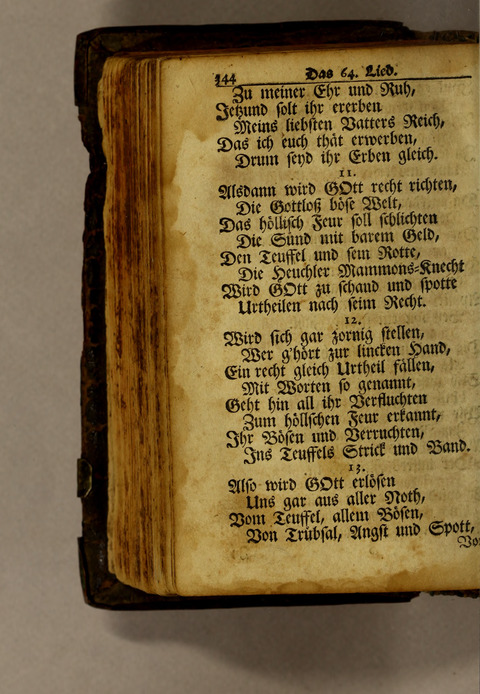 344 Das 64. Lied.
Zu meiner Ehr und Ruh,
Jetzund solt ihr ererben
Meins liebsten Vatters Reich,
Das ich euch thät erwerben,
Drum seyd ihr Erben gleich.
11.
Alsdann wird GOtt recht richten,
Die Gottloß böse Welt,
Das höllisch Feur soll schlichten
Die Sünd mit barem Geld,
Den Teuffel und sein Rotte,
Die Heuchler Mammons-Knecht
Wird GOtt zu schand und spotte
Urtheilen nach seim Recht.
12.
Wird sich gar zornig stellen,
Wer g'hört zur lincken Hand,
Ein recht gleich Urtheil fällen,
Mit Worten so genannt,
Geht hin all ihr Verfluchten
Zum höllschen Feur erkannt,
Ihr Bösen und Verruchten,
Ins Teuffels Strick und Band.
13.
Also wird GOtt erlösen
Uns gar aus aller Noth,
Vom Teuffel, allem Bösen,
Von Trübsal, Angst und Spott,
Von